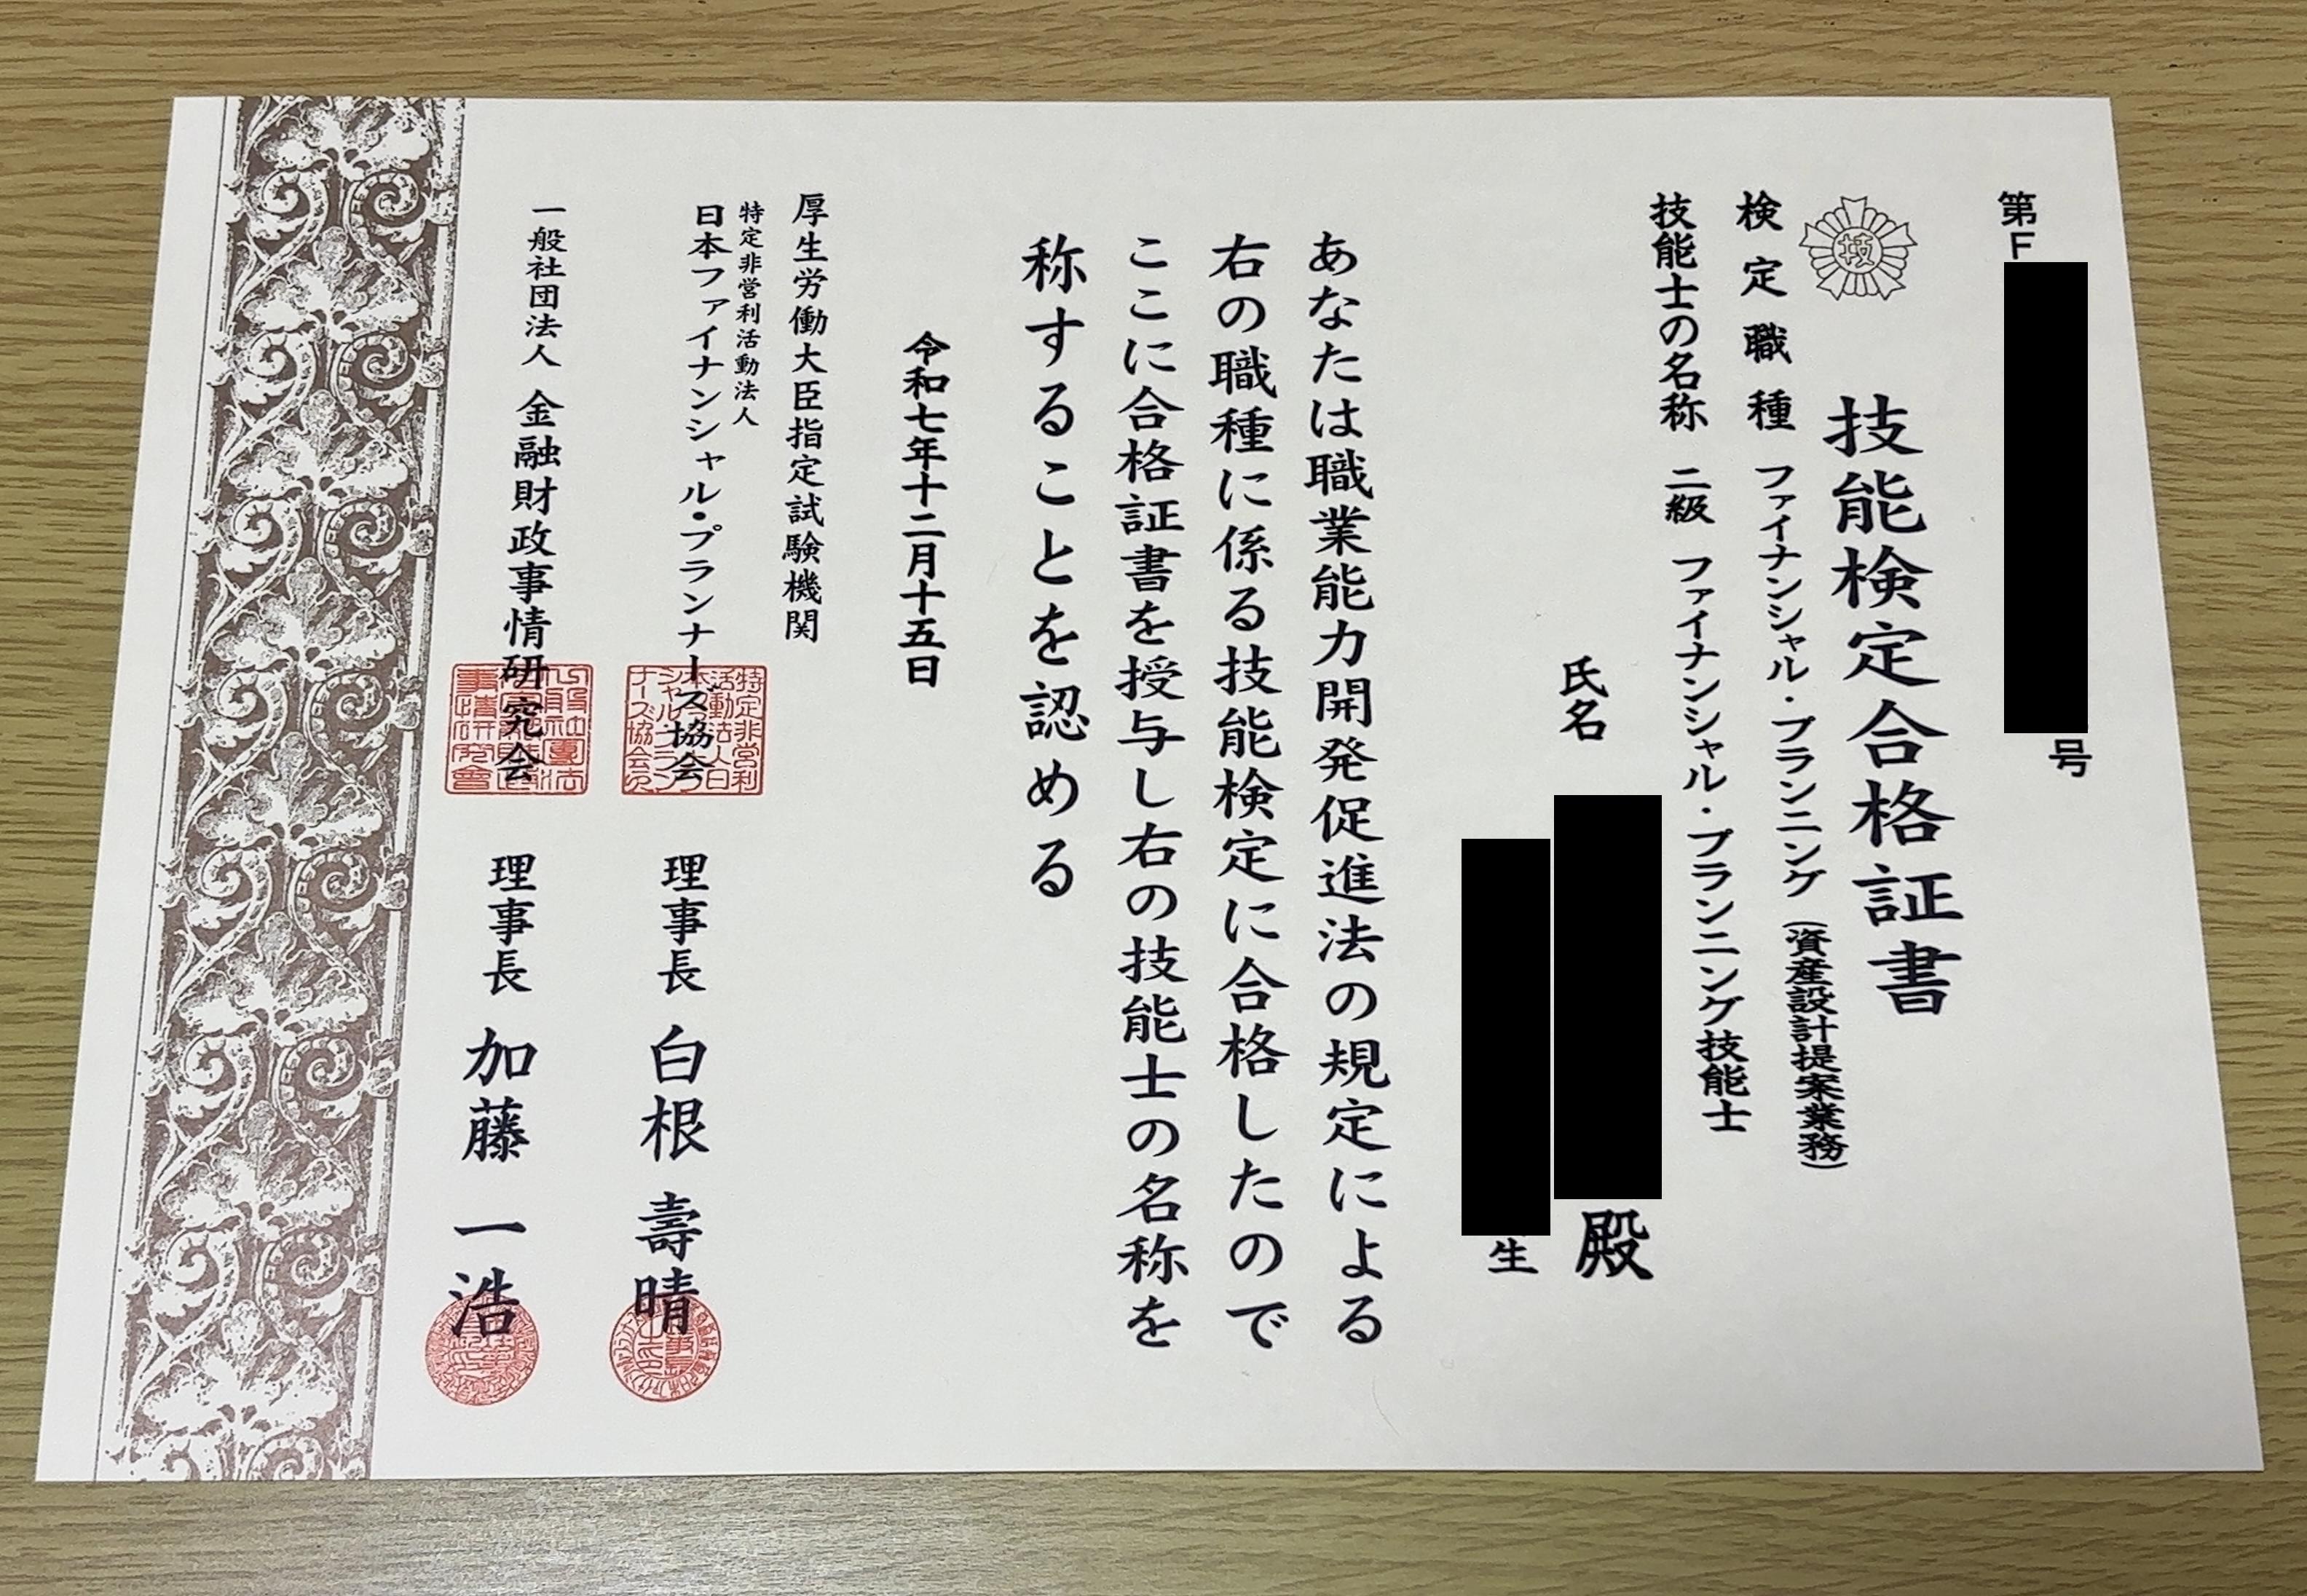 第F
号
技
技能検定合格証書
検定職種 ファイナンシャル・プランニング(資産設計提案業務)
技能士の名称 二級 ファイナンシャル・プランニング技能士
氏名
殿
生
あなたは職業能力開発促進法の規定による
右の職種に係る技能検定に合格したので
ここに合格証書を授与し右の技能士の名称を
称することを認める
令和七年十二月十五日
厚生労働大臣指定試験機関
特定非営利活動法人
日本ファイナンシャル・プランナーズ協会 理事長 白根壽晴
一般社団法人 金融財政事情研究会 理事長 加藤一浩